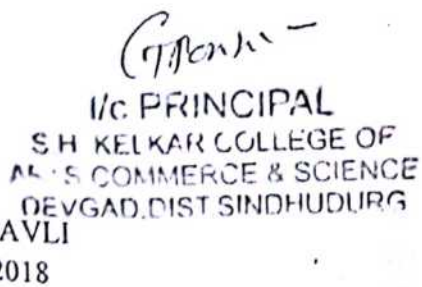 I/c. PRINCIPAL
S H KELKAR COLLEGE OF
COMMERCE & SCIENCE
DEVGAD.DIST SINDHUDURG
AVLI
2018